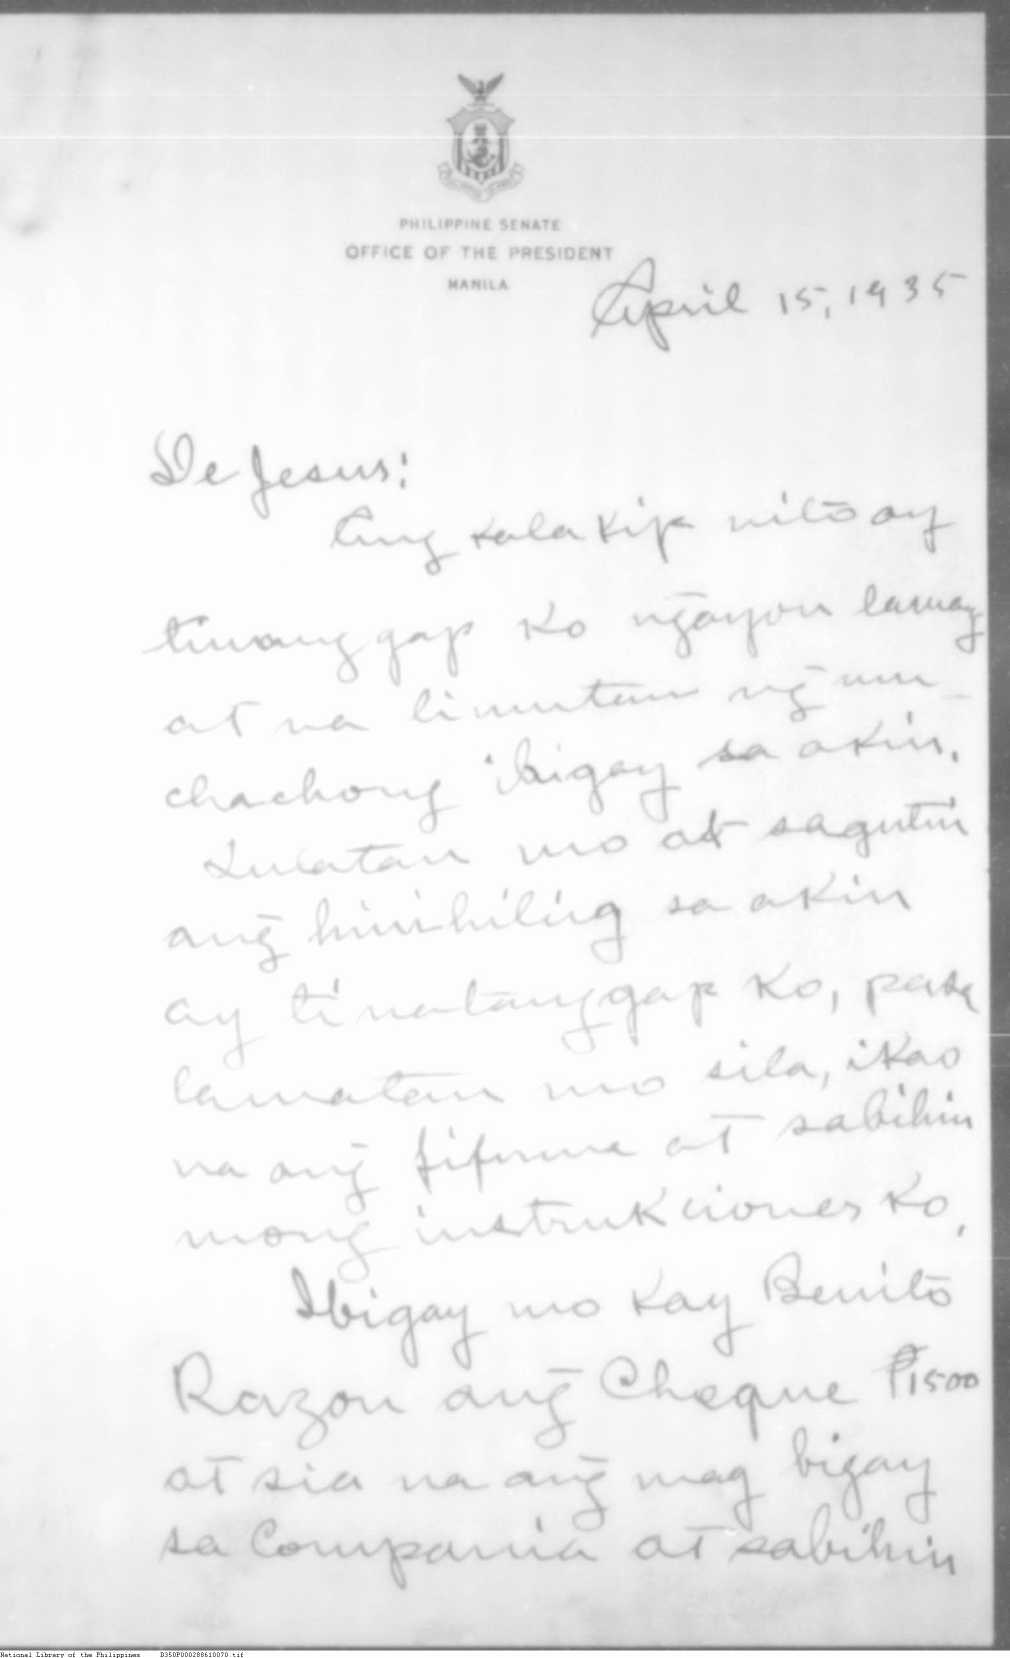 PHILIPPINE SENATE
OFFICE OF THE PRESIDENT
MANILA
April 15, 1935
De Jesus:
Ang kalakip nito ay
tinanggap ko ngayon lamang
at na limutan ng̃ mu-
chachong ibigay sa akin.
Sulatan mo at sagutin
ang̃ hinihiling sa akin
ay tinatanggap ko, pasa
lamatan mo sila, ikao
na ang̃ fifirma at sabihin
mong instrukciones ko.
Ibigay mo kay Benito
Razon ang̃ Cheque ₱1500
at sia na ang̃ mag bigay
sa Compania at sabihin
National Library of the Philippines D350P000288610070.tif